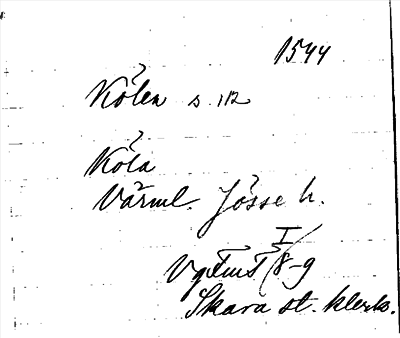 1544
Kölen s. 112
Köla
Värml. Jösse h.
I
8-9
Skara st. klerk.